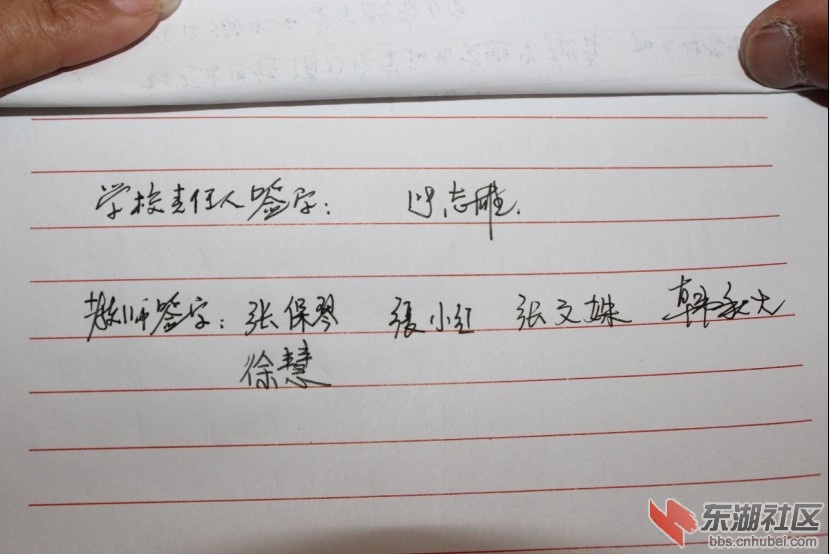 学校责任人签字：志雄.
教师签字：张保琴 张小红 张文姝 韩
徐慧
东湖社区
bbs.cnhubei.com